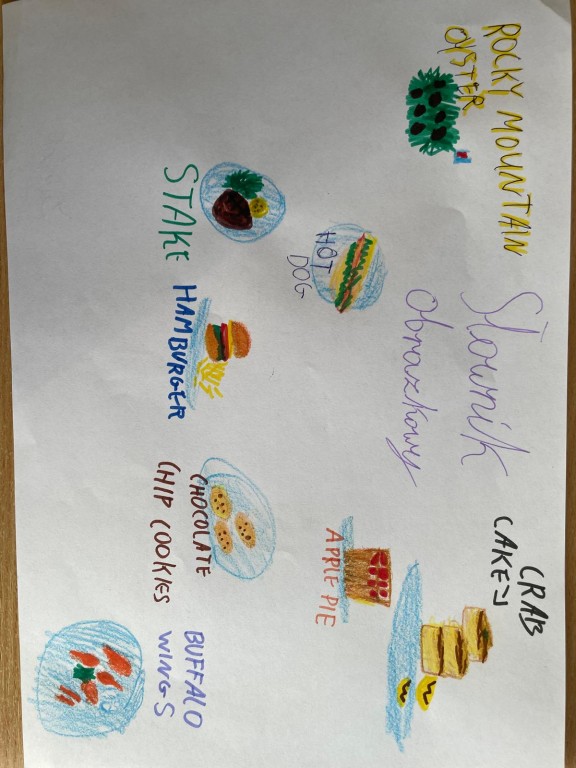 ROCKY MOUNTAIN
OYSTER
Słownik
Obrazkowy
CRAB
CAKES
HOT
DOG
APPLE PIE
STAKE
HAMBURGER
CHOCOLATE
CHIP COOKIES
BUFFALO
WINGS